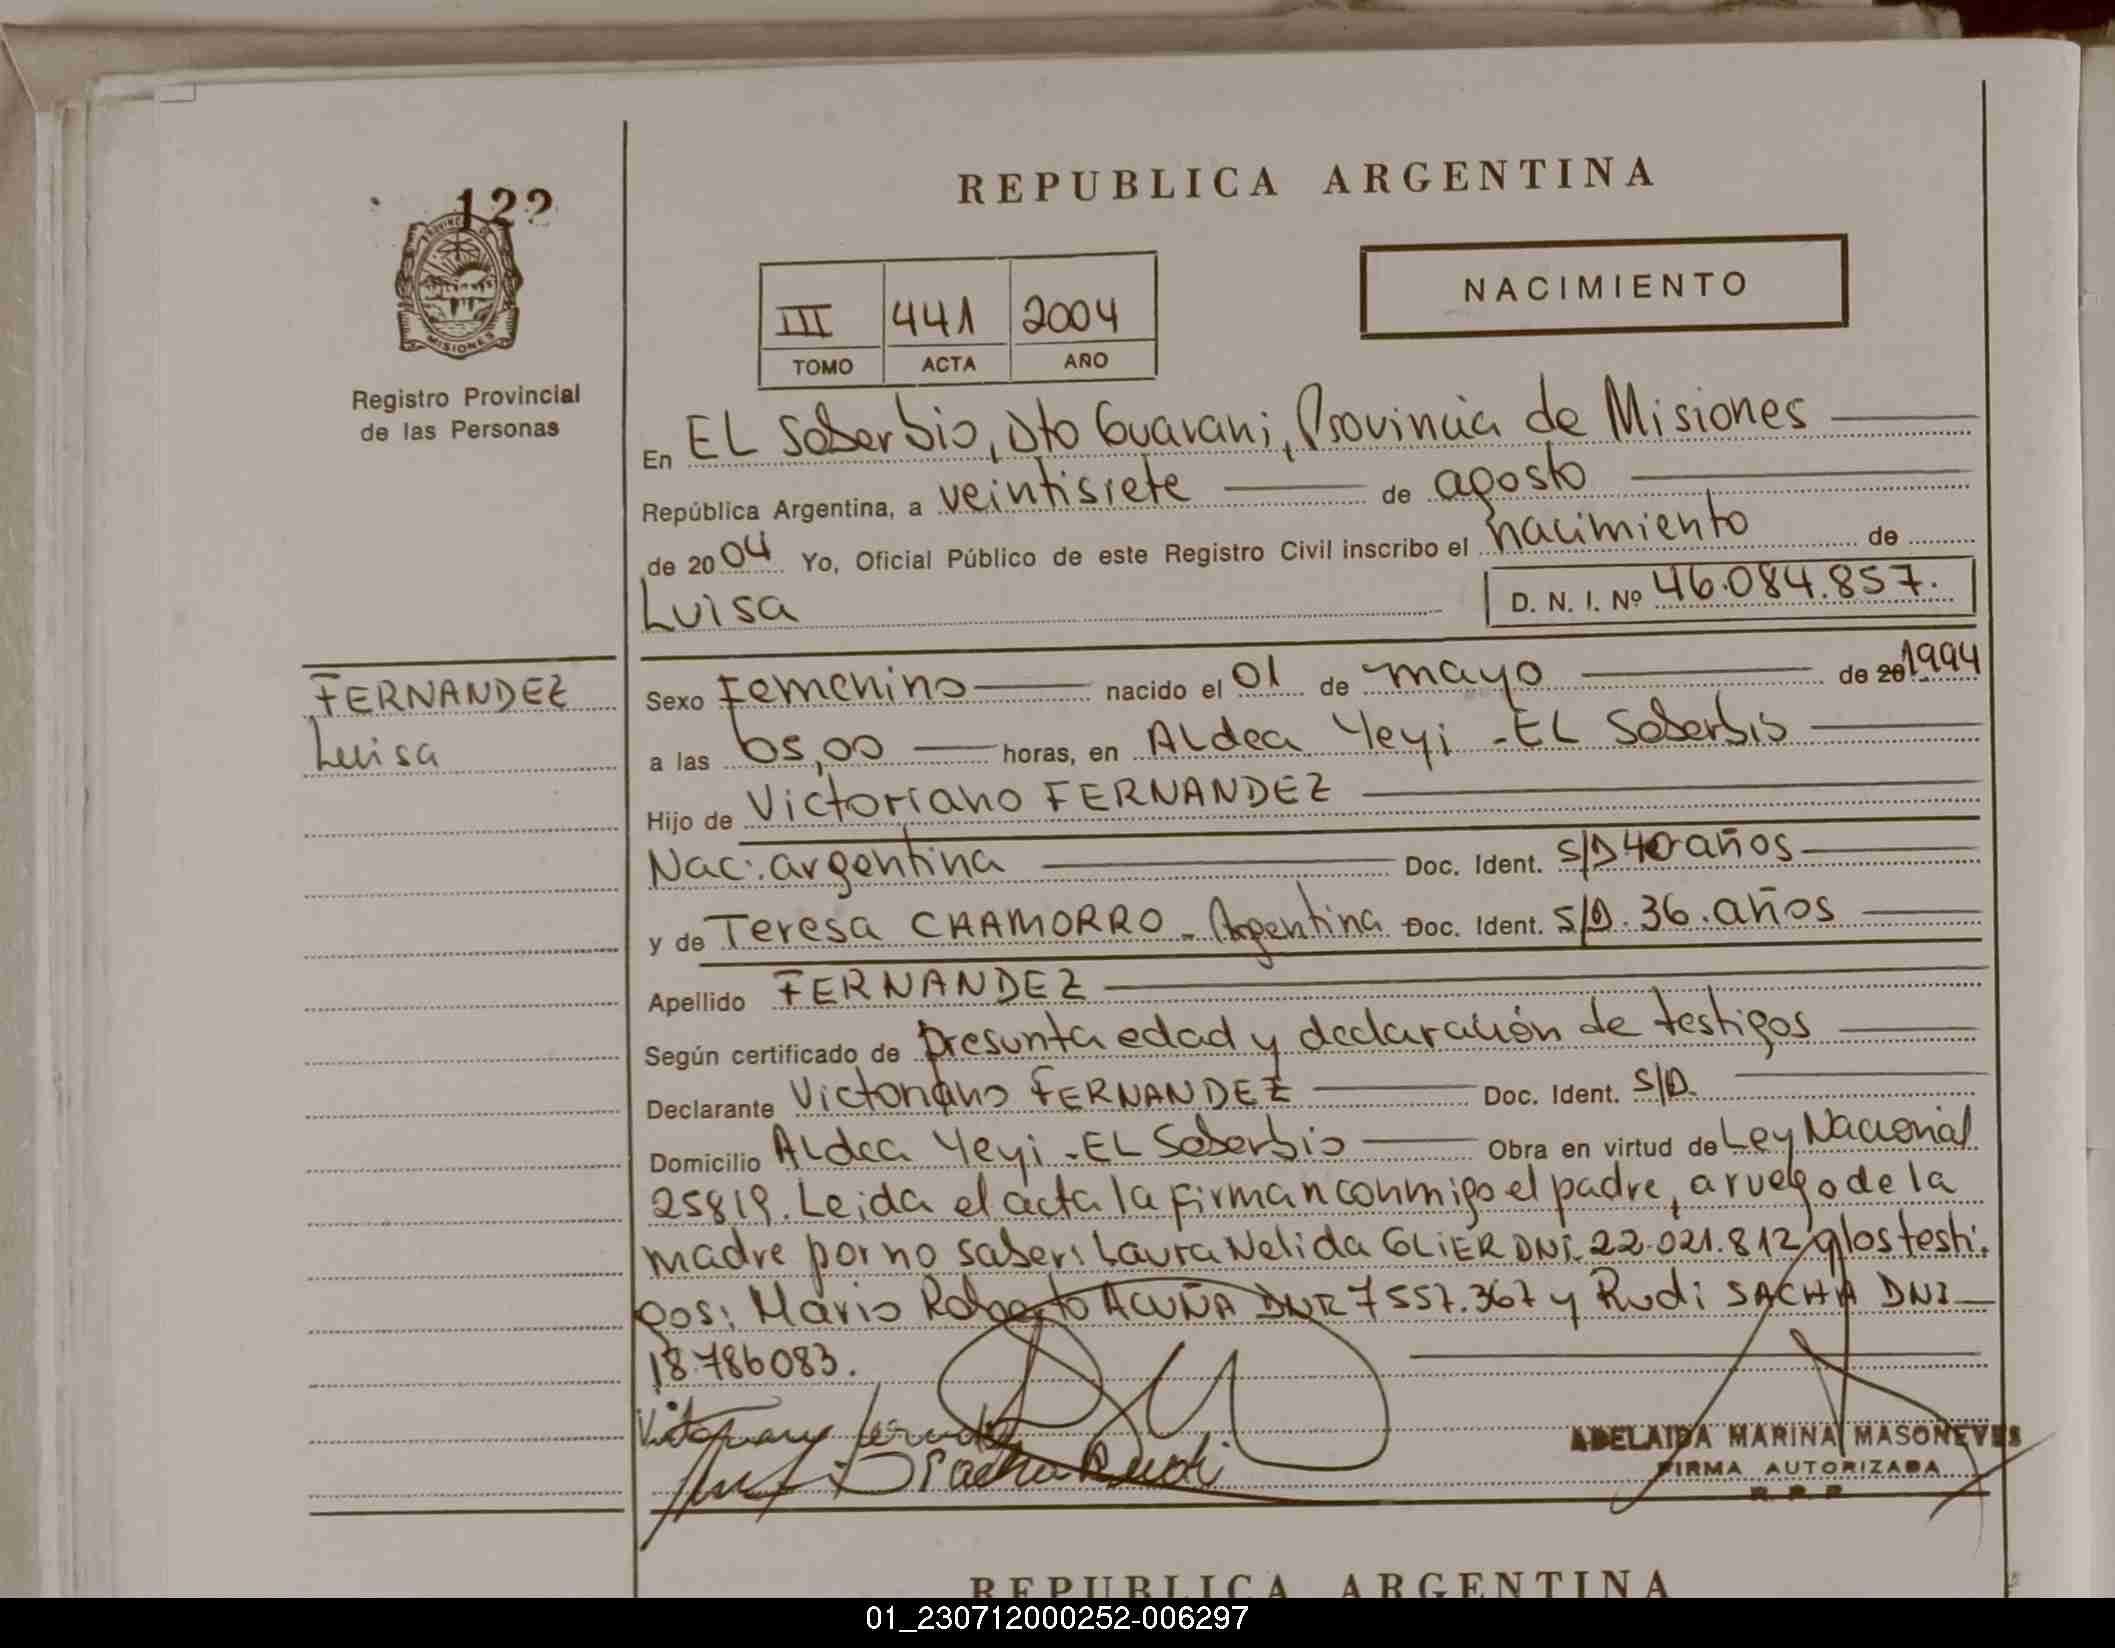 122
PROVINCIA DE
MISIONES
Registro Provincial
de las Personas
REPUBLICA ARGENTINA
NACIMIENTO
III 441 2004
TOMO ACTA AÑO
En EL Soberbio, Dto Guarani, Provincia de Misiones
República Argentina, a veintisiete de agosto
de 2004 Yo, Oficial Público de este Registro Civil inscribo el nacimiento de
Luisa D. N. I. Nº 46.084.857.
FERNANDEZ
Luisa
Sexo Femenino nacido el 01 de mayo de 20 1994
a las 05,00 horas, en ALdea Yeyi - EL Soberbio
Hijo de Victoriano FERNANDEZ
Nac: argentina Doc. Ident. S/D 40 años
y de Teresa CHAMORRO - Argentina Doc. Ident. S/D. 36. años
Apellido FERNANDEZ
Según certificado de presunta edad y declaración de testigos
Declarante Victoriano FERNANDEZ Doc. Ident. S/D.
Domicilio ALdea Yeyi - EL Soberbio Obra en virtud de Ley Nacional
25819. Leida el acta la firman conmigo el padre, a ruego de la
madre por no saber: Laura Nelida GLIER DNI. 22.021.812 y los testi-
gos: Mario Roberto ACUÑA DNI 7557.367 y Rudi SACHA DNI
18.786083.
Sacha Rudi
ADELAIDA MARINA MASONEVES
FIRMA AUTORIZADA
R. P. P.
REPUBLICA ARGENTINA
01_230712000252-006297